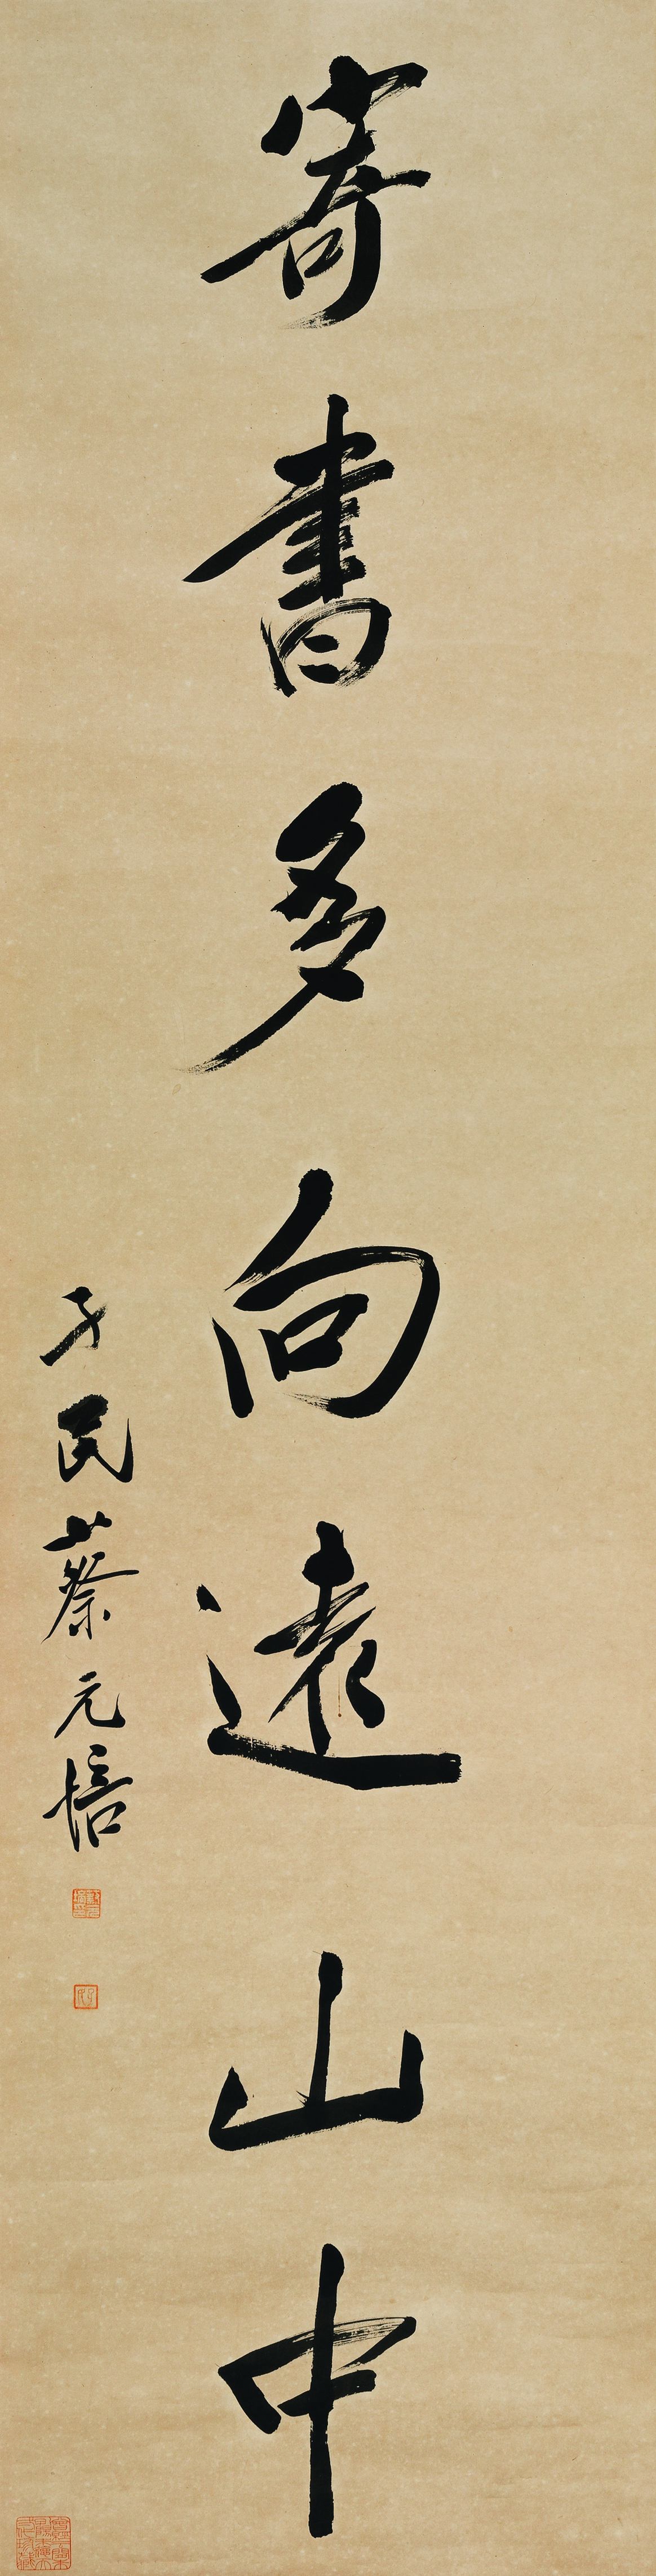 寄書多向遠山中
孑民蔡元培